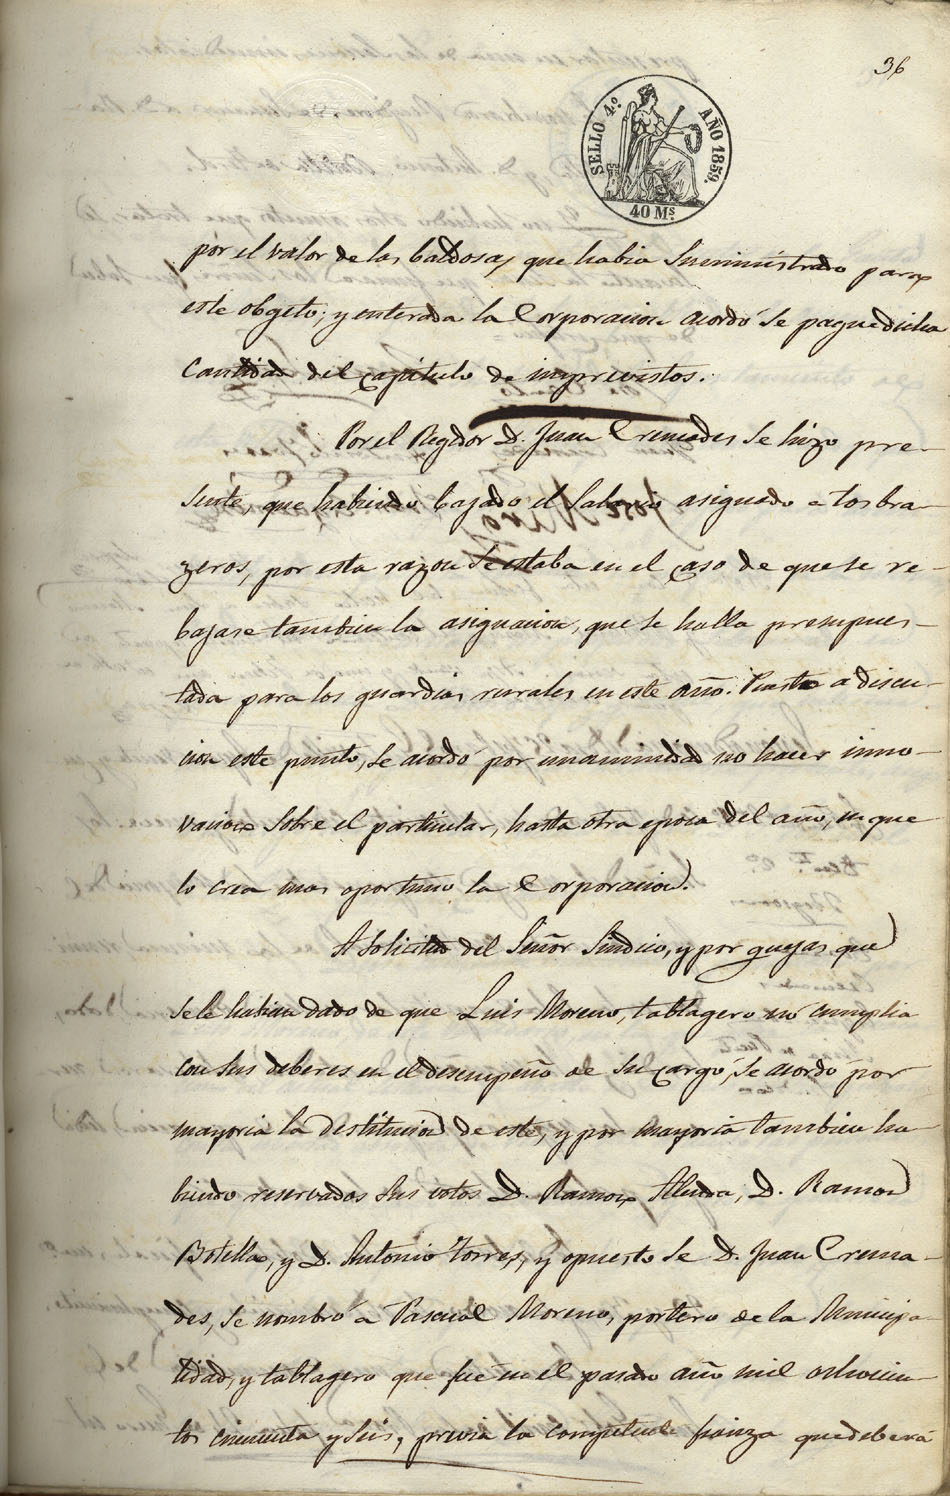 36
SELLO 4.º AÑO 1859.
40 Ms
por el valor de las baldosas, que habia suministrado para
este obgeto; y enterada la Corporacion acordó se pague dicha
cantidad del capitulo de imprevistos.
Por el Regidor D. Juan Cremades se hizo pre-
sente, que habiendo bajado el salario asignado a los bra-
zeros, por esta razon se estaba en el caso de que se re-
bajase tambien la asignacion, que se halla presupues-
tada para los guardias rurales en este año. Puesto a discu-
cion este punto, se acordó por unanimidad no hacer inno-
vacion sobre el particular, hasta otra epoca del año, en que
lo crea mas oportuno la Corporacion.
A solicitud del Señor Sindico, y por quejas que
se le habian dado de que Luis Moreno, tablagero no cumplia
con sus deberes en el desempeño de su cargo, se acordó por
mayoria la destitucion de este, y por mayoria tambien ha-
biendo reservados sus votos D. Ramon Alenda, D. Ramon
Botella, y D. Antonio Torres, y opuesto se D. Juan Crema-
des, se nombró a Pascual Moreno, portero de la Municipa-
lidad, y tablagero que fue en el pasado año mil ochocien-
tos cincuenta y seis, previa la competente fianza que deberá